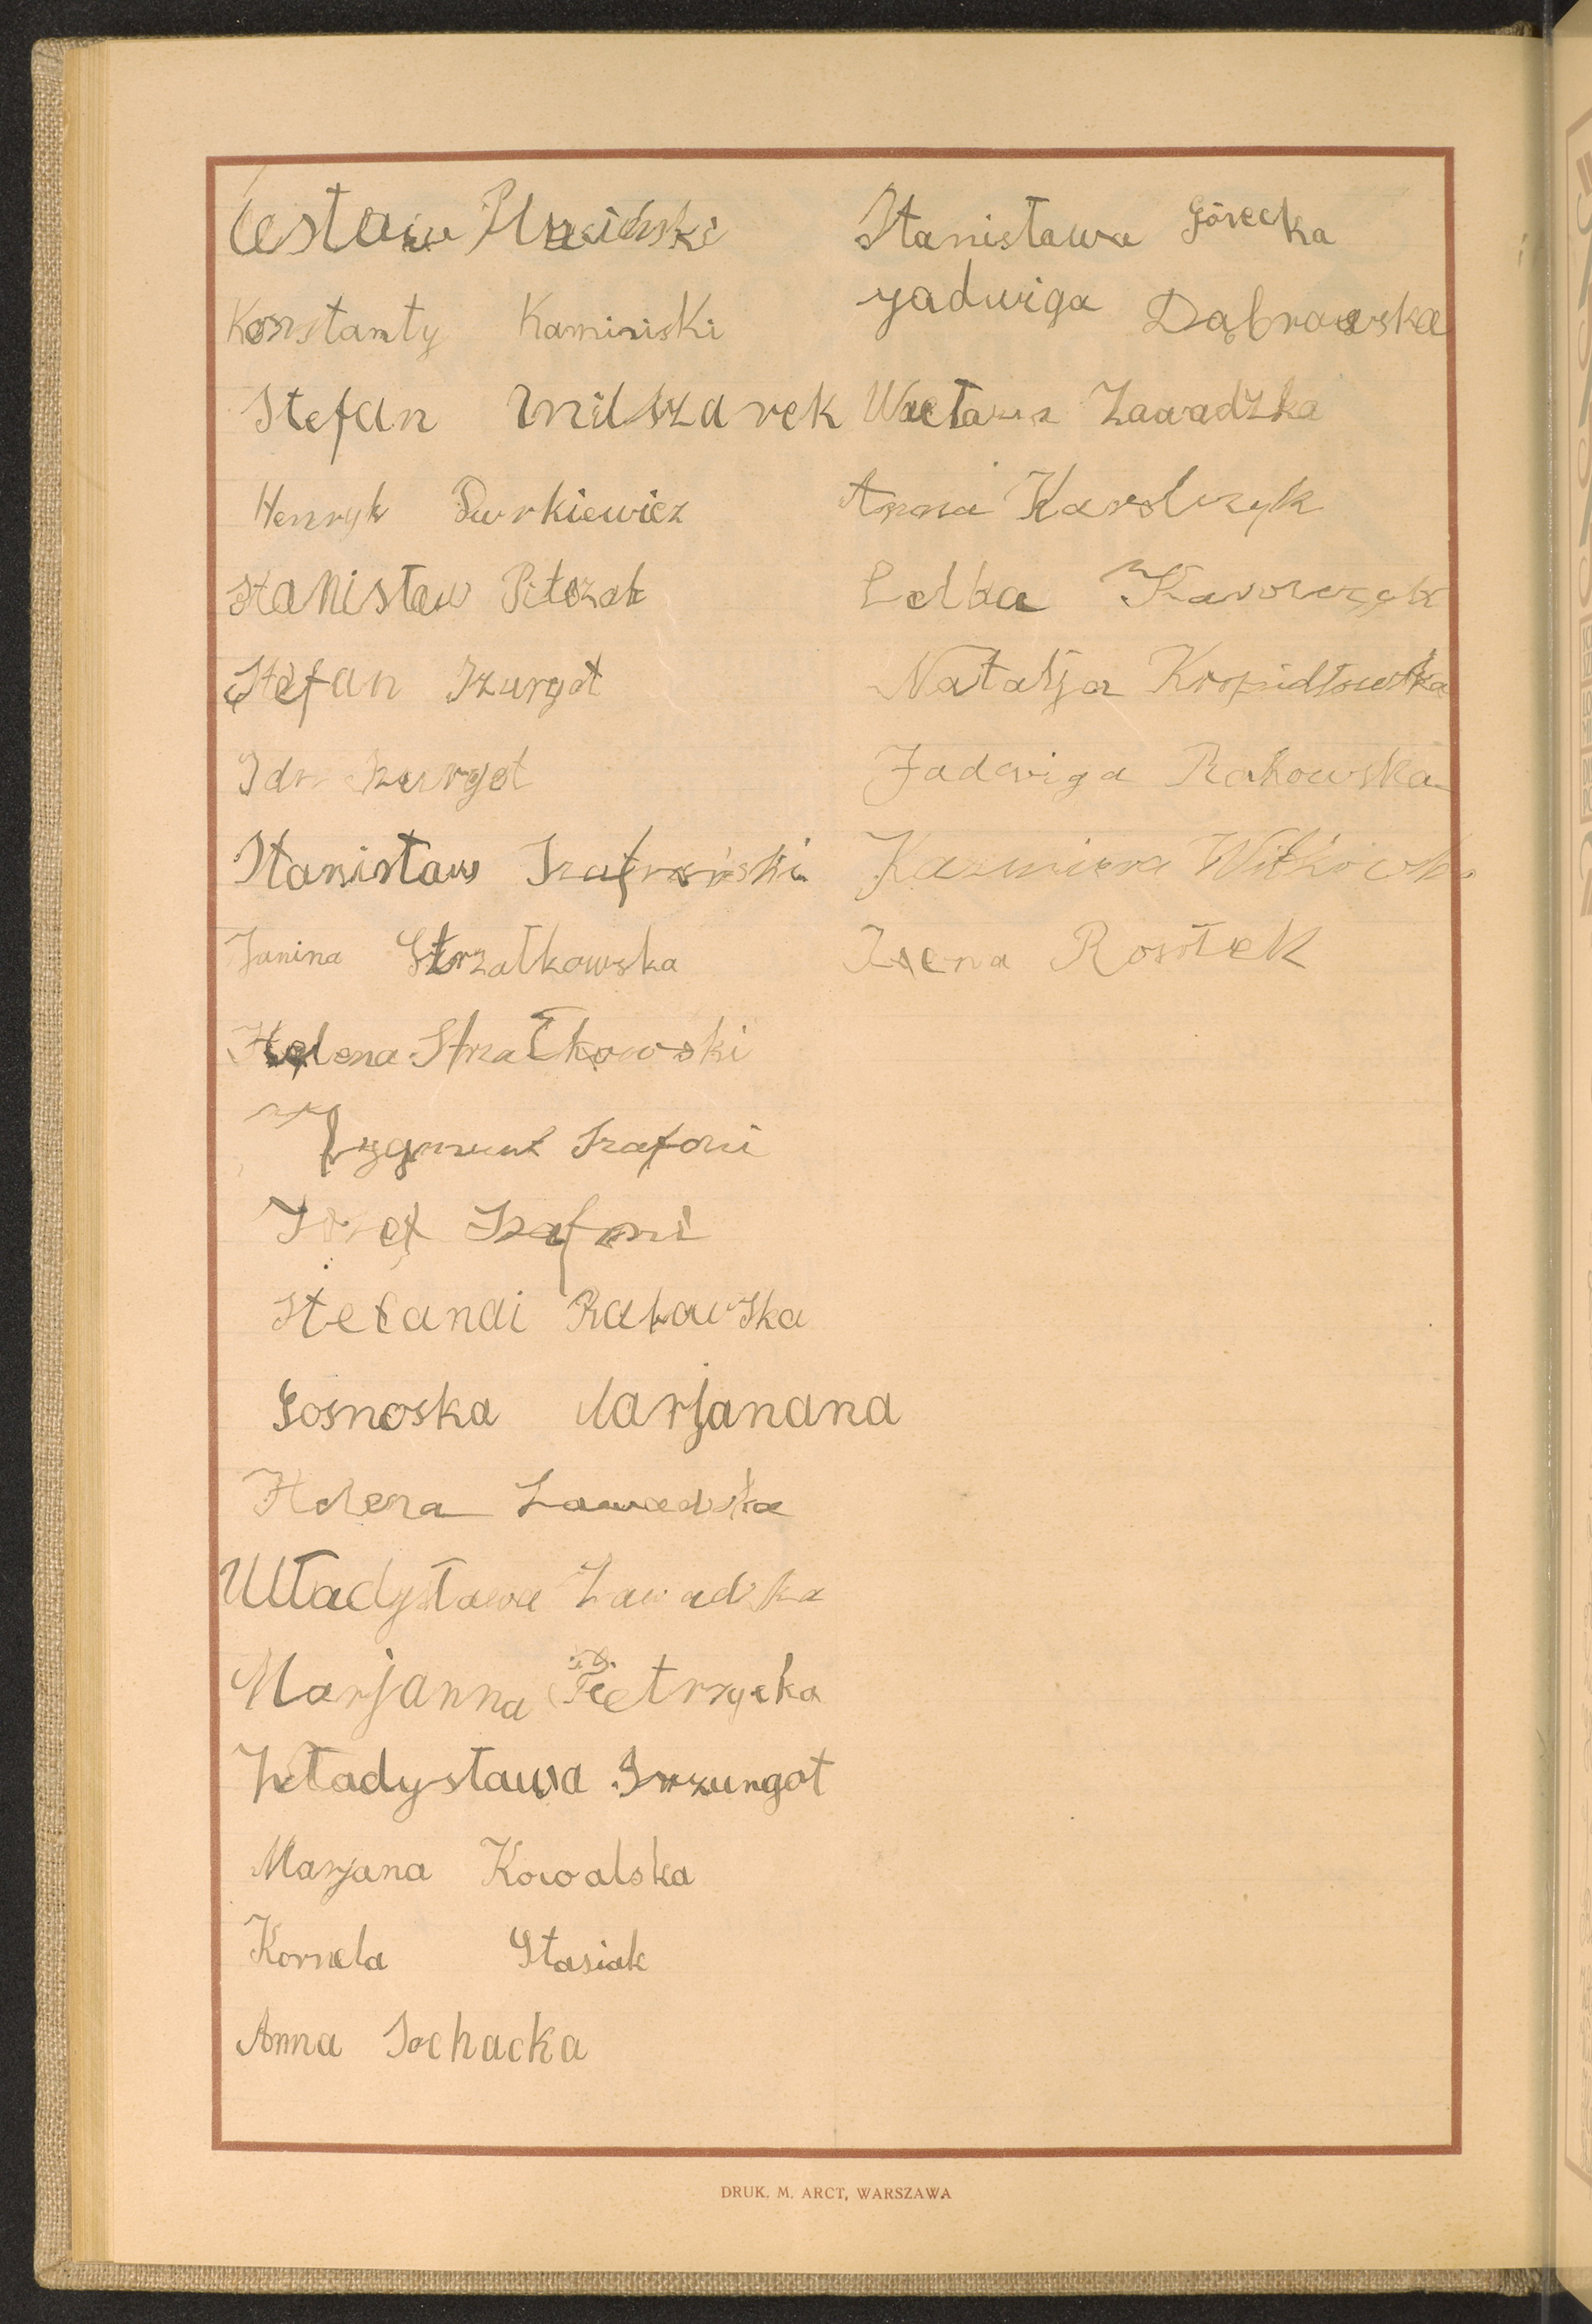 Konstanty Kaminiski
Stefan Milszarek
Henryk Burkiewicz
Stanisław
Stefan Szurgot
Szurgot
Stanisław Szafrański
Janina Strzałkowska
Helena Strzałkowski
Zygmunt Szafoni
Józef Szafoni
Stefanai Rakowska
Sosnoska Marjanana
Helena Zawadzka
Władysława Zawadzka
Marjanna Pietrzycka
Władysława Szzurgot
Marjana Kowalska
Kornela Stasiak
Anna Sochacka
Stanisława Górecka
Jadwiga Dąbrowska
Wacława Zawadzka
Anna Karolczyk
Natalja Kropidłowska
Jadwiga Rakowska
Kazmiera
Irena Rosiek
DRUK. M. ARCT, WARSZAWA